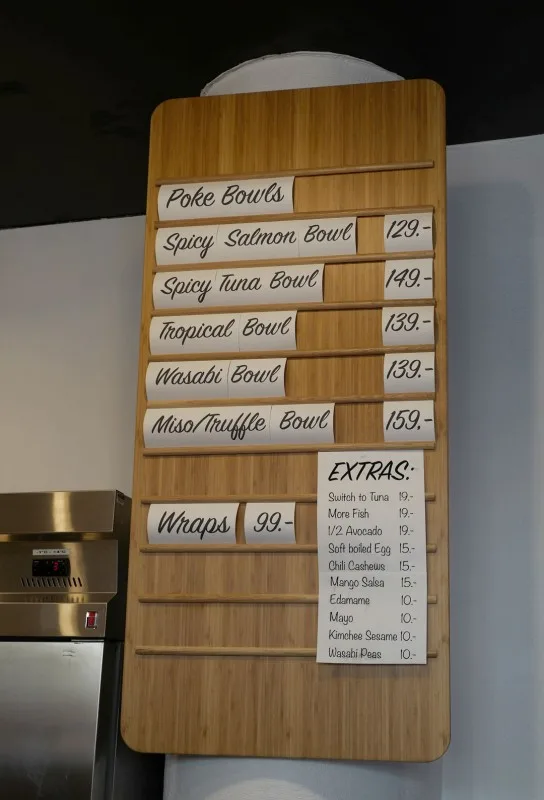 Poke Bowls
Spicy Salmon Bowl 129.-
Spicy Tuna Bowl 149.-
Tropical Bowl 139.-
Wasabi Bowl 139.-
Miso/Truffle Bowl 159.-
Wraps 99.-
EXTRAS:
Switch to Tuna 19.-
More Fish 19.-
1/2 Avocado 19.-
Soft boiled Egg 15.-
Chili Cashews 15.-
Mango Salsa 15.-
Edamame 10.-
Mayo 10.-
Kimchee Sesame 10.-
Wasabi Peas 10.-